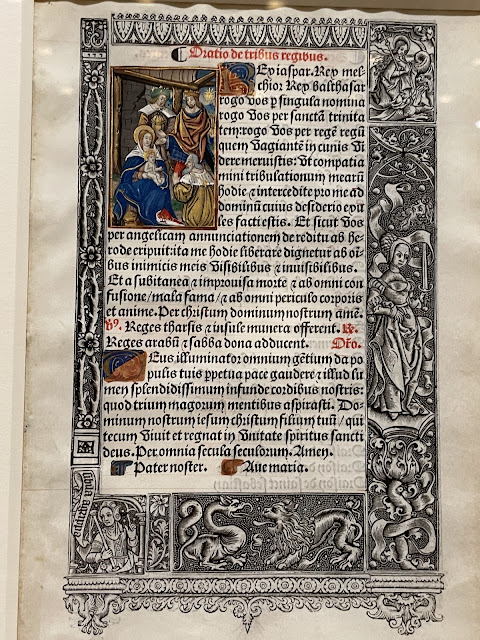 Oratio de tribus regibus.
Rex iaspar. Rex mel
chior Rex balthasar
rogo vos ꝑ singula nomina
rogo vos per sanctā trinita
tem: rogo vos per regē regū
quem vagiantē in cunis vi
dere meruistis: vt compatia
mini tribulationum mearū
hodie ⁊ intercedite pro me ad
dominū cuius desiderio exu
les facti estis. Et sicut vos
per angelicam annunciationem de reditu ab he
rode eripuit: ita me hodie liberare dignetur ab oī
bus inimicis meis visibilibus ⁊ inuisibilibus.
Et a subitanea ⁊ improuisa morte ⁊ ab omni con
fusione/mala fama/⁊ ab omni periculo corporis
et anime. Per christum dominum nostrum amē.
v9. Reges tharsis ⁊ insule munera offerent. R.
Reges arabū ⁊ sabba dona adducent. Oro.
Deus illuminator omnium gētium da po
pulis tuis ꝑpetua pace gaudere ⁊ illud lu
men splendidissimum infunde cordibus nostris:
quod trium magorum mentibus aspirasti. Do
minum nostrum iesum christum filium tuū/qui
tecum viuit et regnat in vnitate spiritus sancti
deus. Per omnia secula seculorum. Amen.
Pater noster. Aue maria.